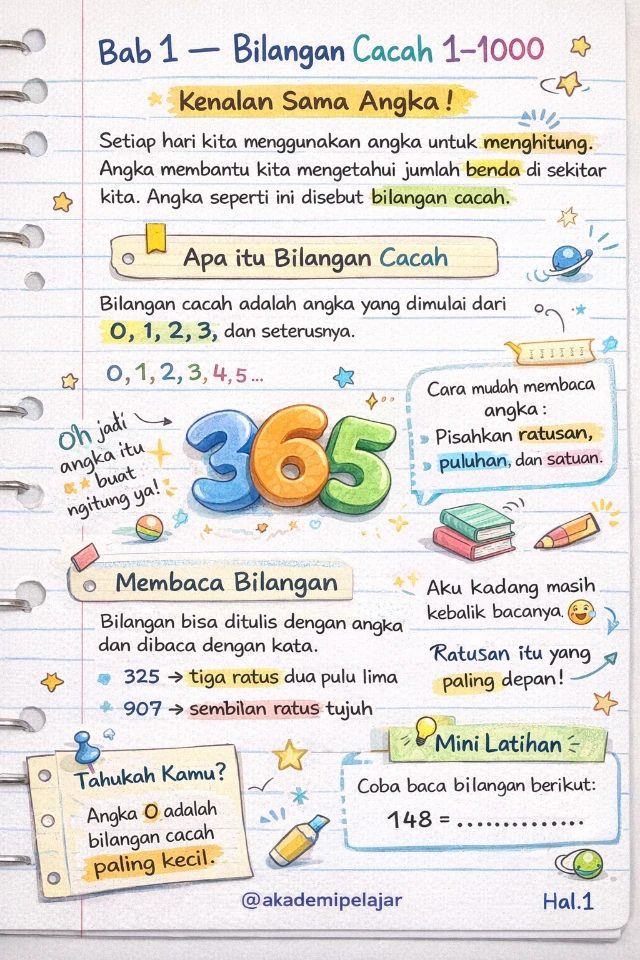 Bab 1 — Bilangan Cacah 1–1000
Kenalan Sama Angka !
Setiap hari kita menggunakan angka untuk menghitung.
Angka membantu kita mengetahui jumlah benda di sekitar
kita. Angka seperti ini disebut bilangan cacah.
Apa itu Bilangan Cacah
Bilangan cacah adalah angka yang dimulai dari
0, 1, 2, 3, dan seterusnya.
0, 1, 2, 3, 4, 5 ...
Oh jadi
angka itu
buat
ngitung ya!
365
Cara mudah membaca
angka :
Pisahkan ratusan,
puluhan, dan satuan.
Membaca Bilangan
Bilangan bisa ditulis dengan angka
dan dibaca dengan kata.
325 → tiga ratus dua pulu lima
907 → sembilan ratus tujuh
Aku kadang masih
kebalik bacanya.
Ratusan itu yang
paling depan!
Tahukah Kamu?
Angka 0 adalah
bilangan cacah
paling kecil.
Mini Latihan
Coba baca bilangan berikut:
148 = .............
@akademipelajar
Hal.1